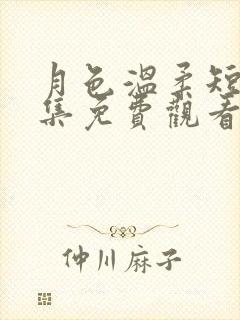 月色溫柔短
集免費觀看
仲川麻子